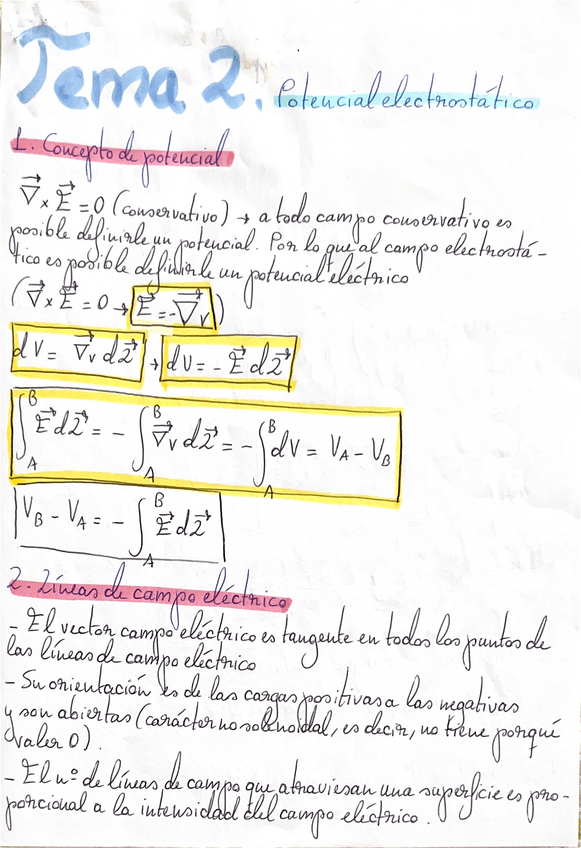 Tema 2. Potencial electrostático
1. Concepto de potencial
∇⃗ x E⃗ = 0 (conservativo) → a todo campo conservativo es
posible definirle un potencial. Por lo que al campo electrostá-
tico es posible definirle un potencial eléctrico
(∇⃗ x E⃗ = 0 → E⃗ = -∇⃗v)
dV = ∇⃗v dl⃗ → dv = - E⃗ dl⃗
∫_A^B E⃗ dl⃗ = - ∫_A^B ∇⃗v dl⃗ = - ∫_A^B dV = V_A - V_B
V_B - V_A = - ∫_A^B E⃗ dl⃗
2. Líneas de campo eléctrico
- El vector campo eléctrico es tangente en todos los puntos de
las líneas de campo eléctrico
- Su orientación es de las cargas positivas a las negativas
y son abiertas (carácter no solenoidal, es decir, no tiene porqué
valer 0).
- El nº de líneas de campo que atraviesan una superficie es pro-
porcional a la intensidad del campo eléctrico.